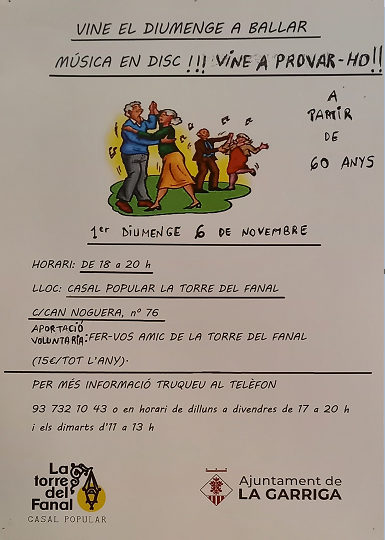 VINE EL DIUMENGE A BALLAR
MÚSICA EN DISC !!! VINE A PROVAR-HO!!
A
PARTIR
DE
60 ANYS
1er DIUMENGE 6 DE NOVEMBRE
HORARI: DE 18 a 20 h
LLOC: CASAL POPULAR LA TORRE DEL FANAL
C/CAN NOGUERA, nº 76
APORTACIÓ
VOLUNTARIA: FER-VOS AMIC DE LA TORRE DEL FANAL
(15€/TOT L'ANY).
PER MÉS INFORMACIÓ TRUQUEU AL TELÈFON
93 732 10 43 o en horari de dilluns a divendres de 17 a 20 h
i els dimarts d'11 a 13 h
La
torre
del
Fanal
CASAL POPULAR
Ajuntament de
LA GARRIGA